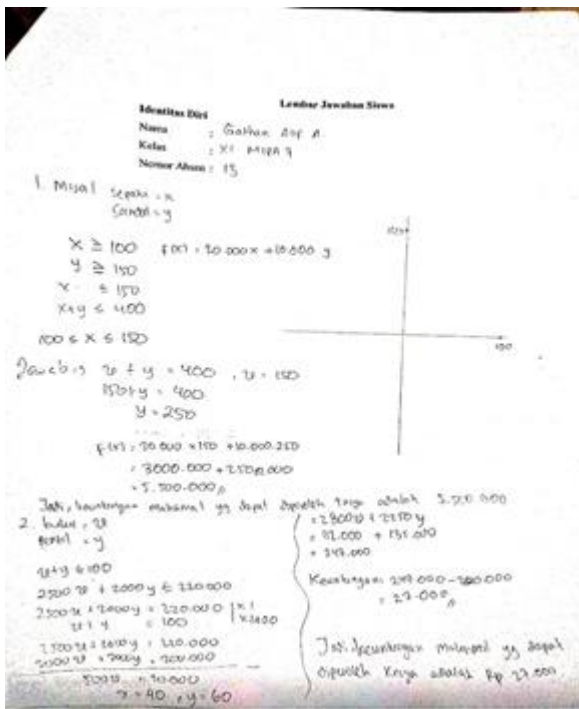 Lembar Jawaban Siswa
Identitas Diri
Nama :
Kelas : XI MIPA 7
Nomor Absen : 15
1. Misal sepatu = x
Sandal = y
x ≥ 100 f(x) = 20.000x + 10.000 y
y ≥ 150
x ≤ 150
x+y ≤ 400
100 ≤ x ≤ 150
150
x + y = 400 , x = 150
150+y = 400
y = 250
f(x) = 20.000 × 150 + 10.000.250
= 3000.000 + 2500.000
= 5.500.000
Jadi, keuntungan maksimal yg dapat diperoleh adalah 5.500.000
2. buku = x
pensil = y
x+y ≤ 100
2500 x + 2000 y ≤ 220.000
2500 x + 2000 y = 220.000 | x 1
x + y = 100
2500 x + 2000 y = 220.000
2000 x + 2000 y = 200.000
500 x = 20.000
x = 40 , y = 60
= 2800 x + 2250 y
= 112.000 + 135.000
= 247.000
Keuntungan: 247.000 - 220.000
= 27.000
Jadi, keuntungan yg dapat
diperoleh adalah Rp 27.000